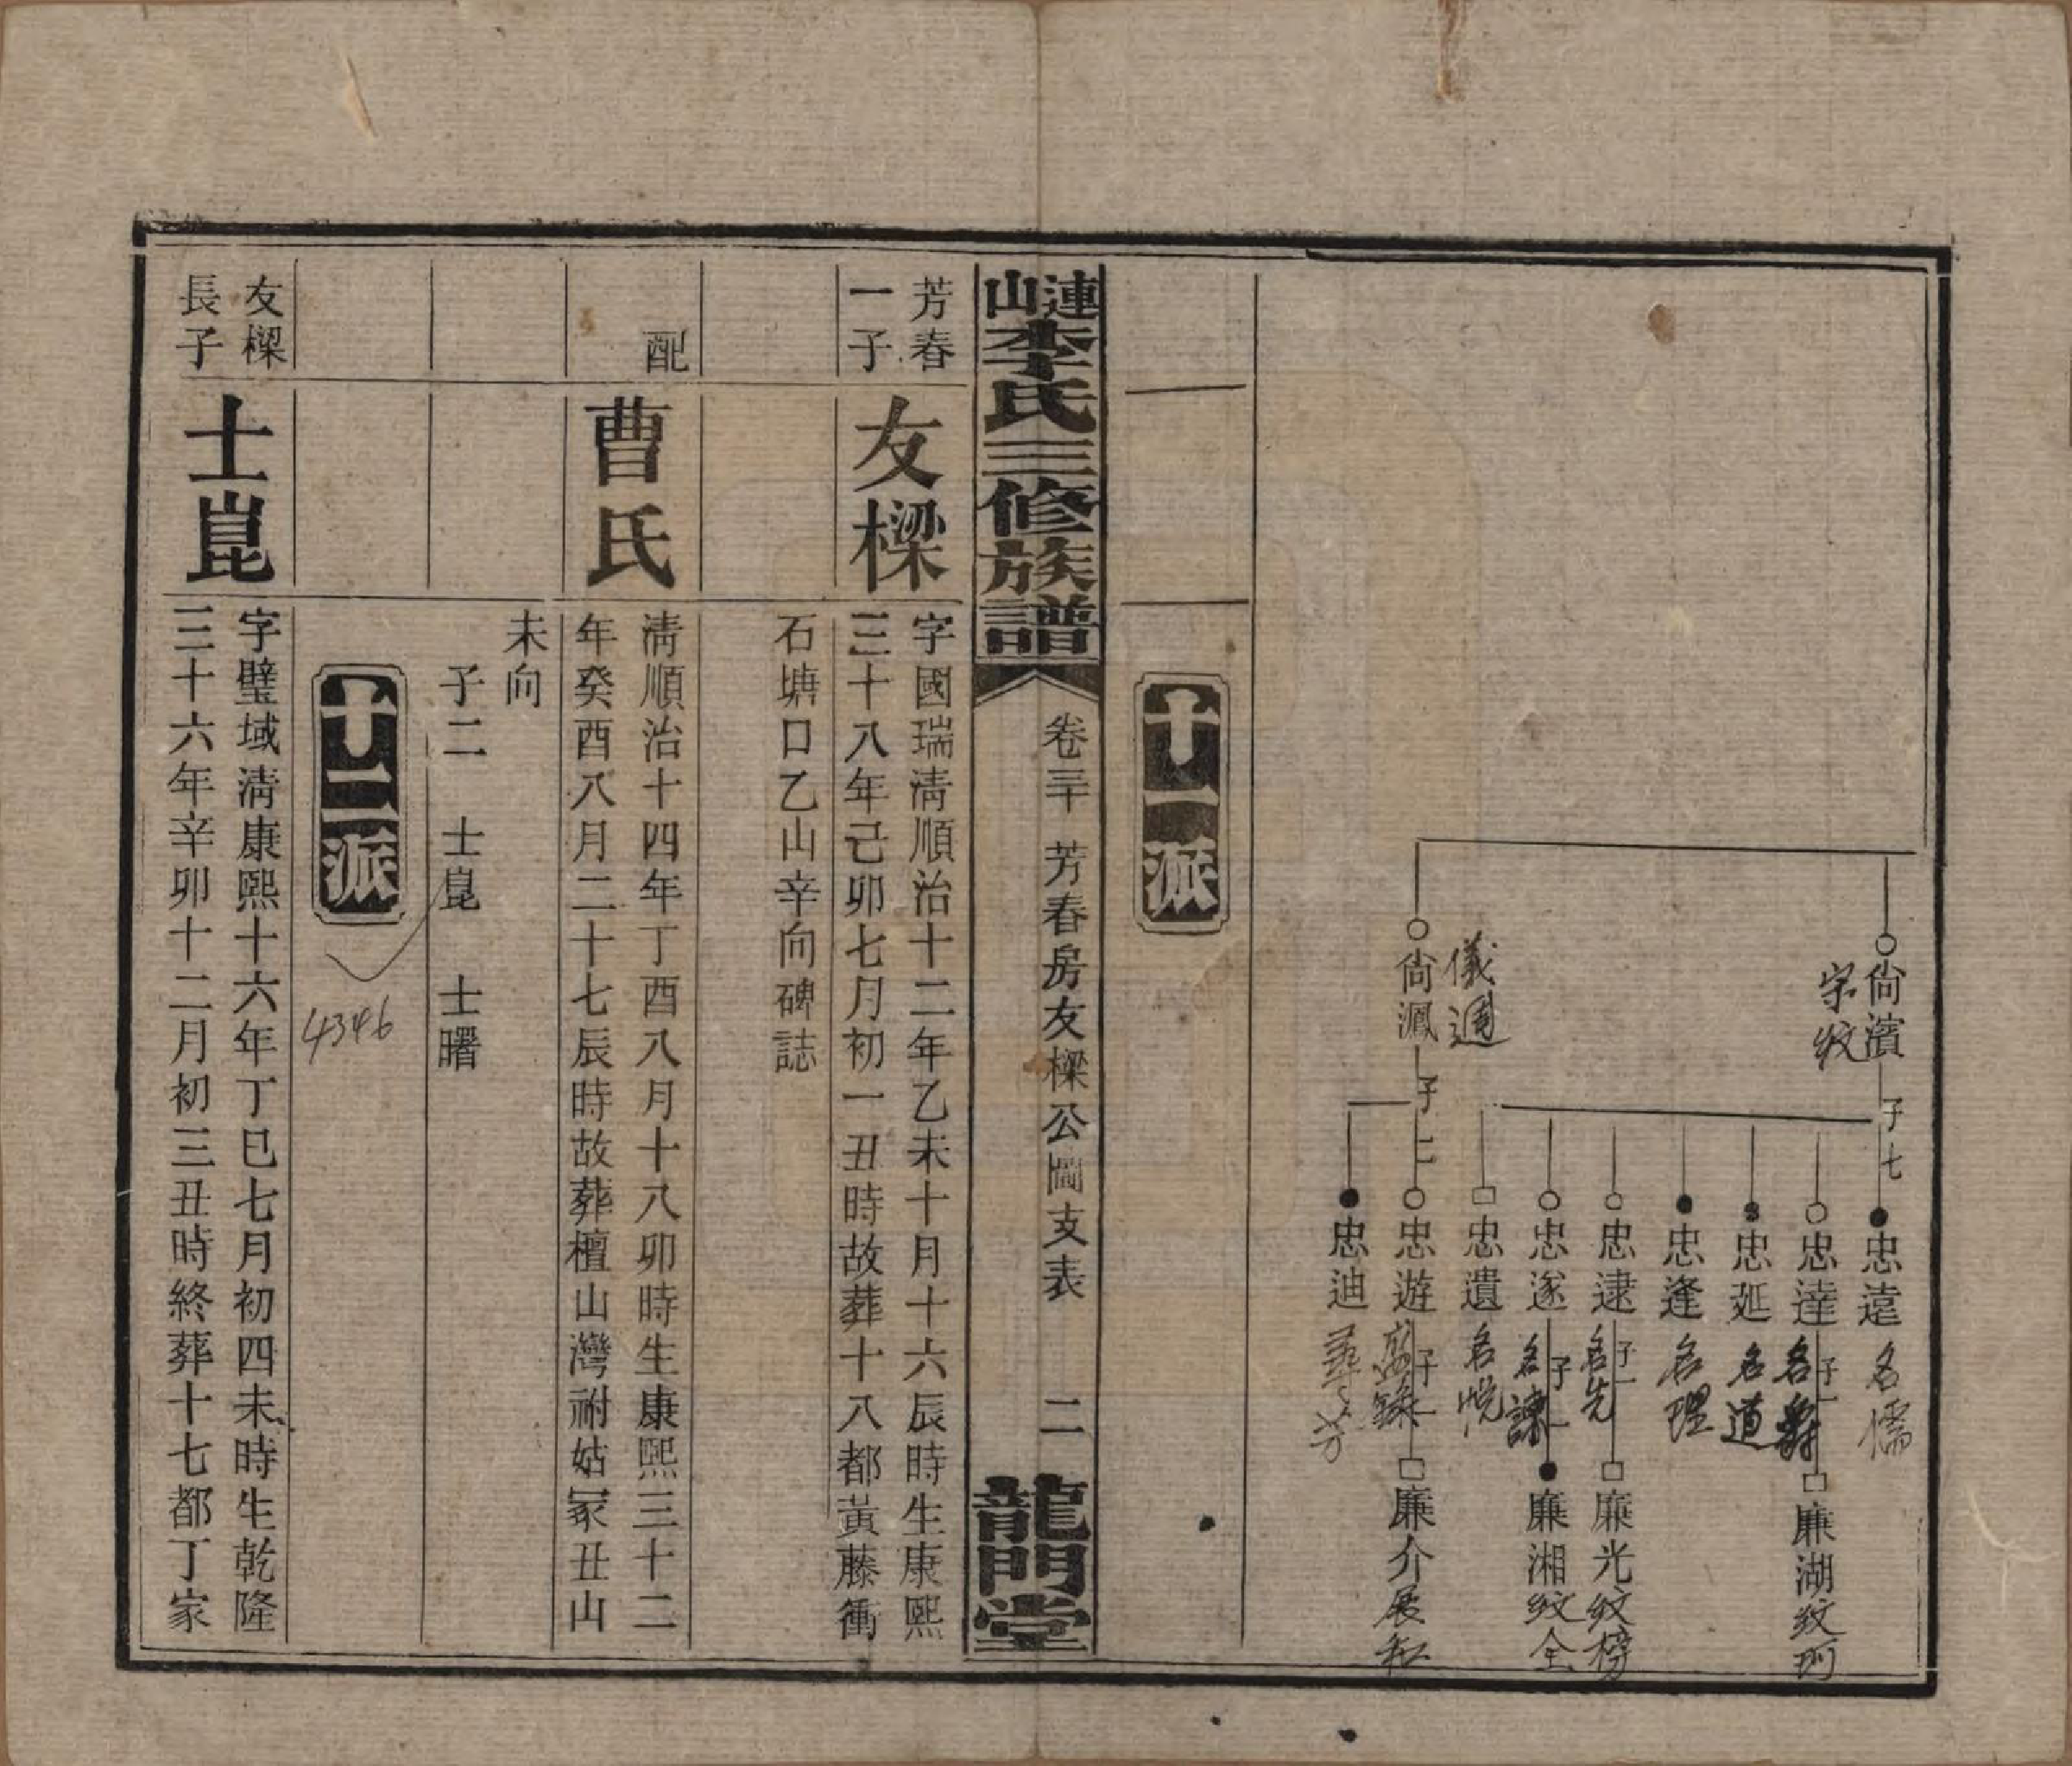 尙濱
子七
忠遠
名儒
忠達
子一
廉湖
忠延
名道
忠逢
名理
忠逮
子一
名先
廉光
紋榜
忠遂
子一
名諫
廉湘
紋全
忠遺
名悅
尙灦
儀通
子二
忠遊
子一
廉介
忠迪
十一派
連山李氏三修族譜
卷三十 芳春房友樑公圖支表 二
龍門堂
芳春
一子
友樑
字國瑞淸順治十二年乙未十月十六辰時生康熙
三十八年己卯七月初一丑時故葬十八都黃藤衝
石塘口乙山辛向碑誌
配
曹氏
淸順治十四年丁酉八月十八卯時生康熙三十二
年癸酉八月二十七辰時故葬檀山灣祔姑冢丑山
未向
子二 士崑 士曙
十二派
4346
友樑
長子
士崑
字璧域淸康熙十六年丁巳七月初四未時生乾隆
三十六年辛卯十二月初三丑時終葬十七都丁家